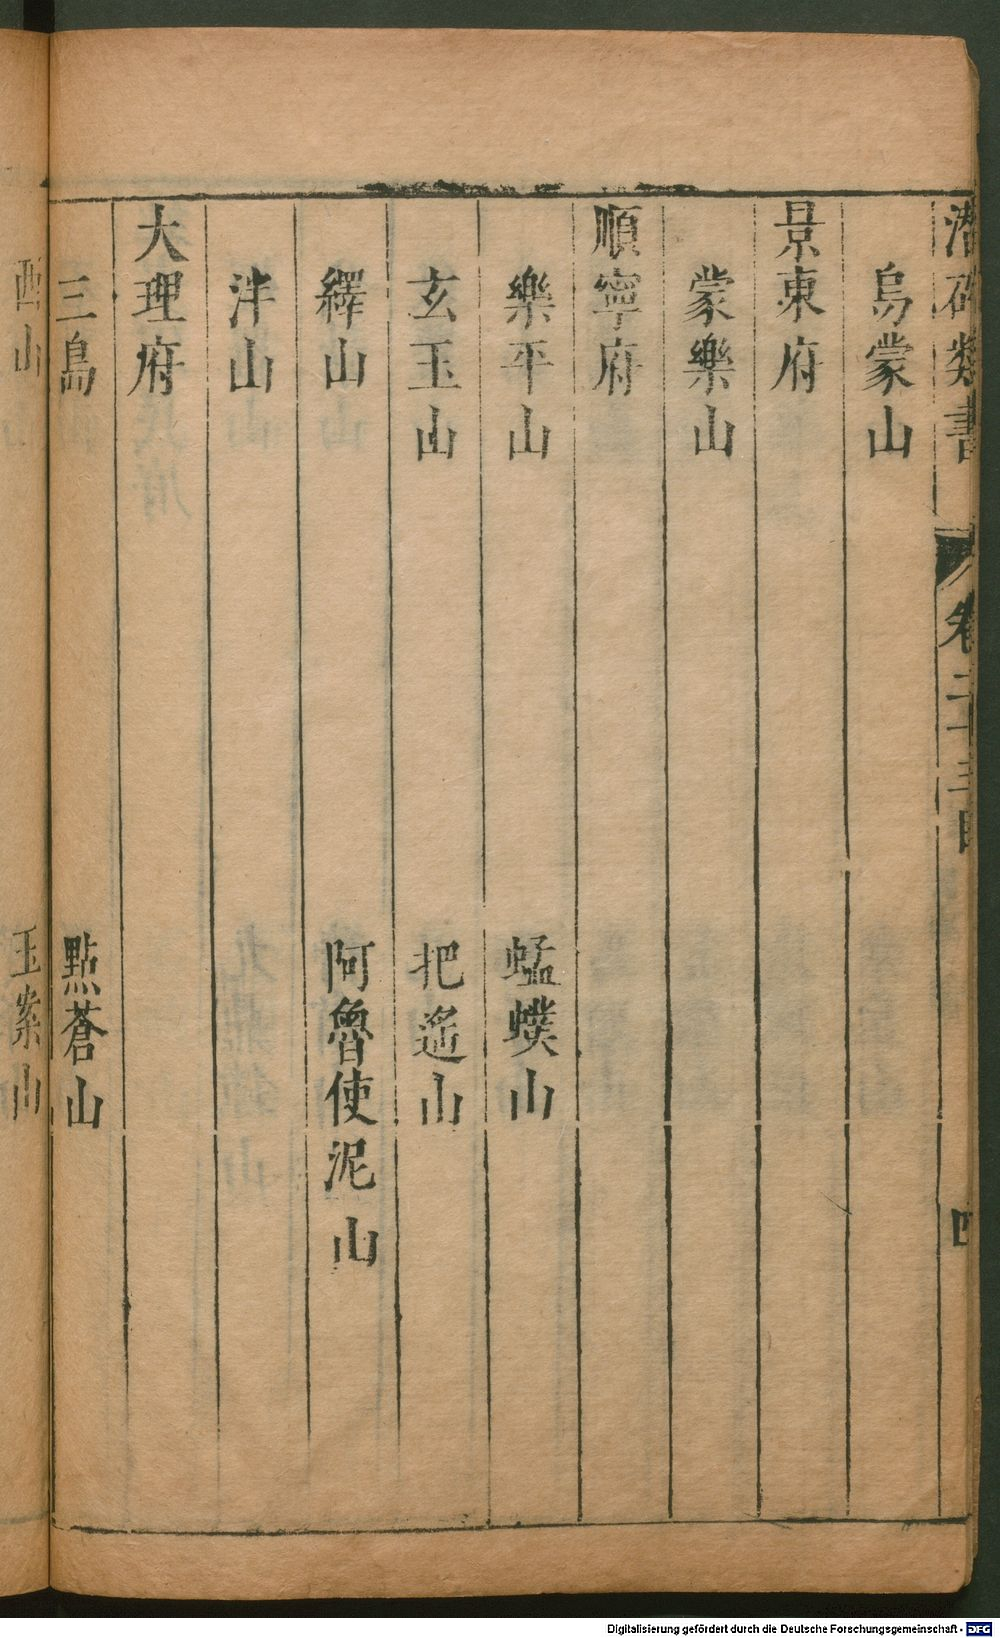 潛確類書 卷二十三目 四
烏蒙山
景東府
蒙樂山
順寧府
樂平山 蜢蠂山
玄玉山 把遙山
繹山 阿魯使泥山
泮山
大理府
三島 點蒼山
西山 玉案山
Digitalisierung gefördert durch die Deutsche Forschungsgemeinschaft - DFG